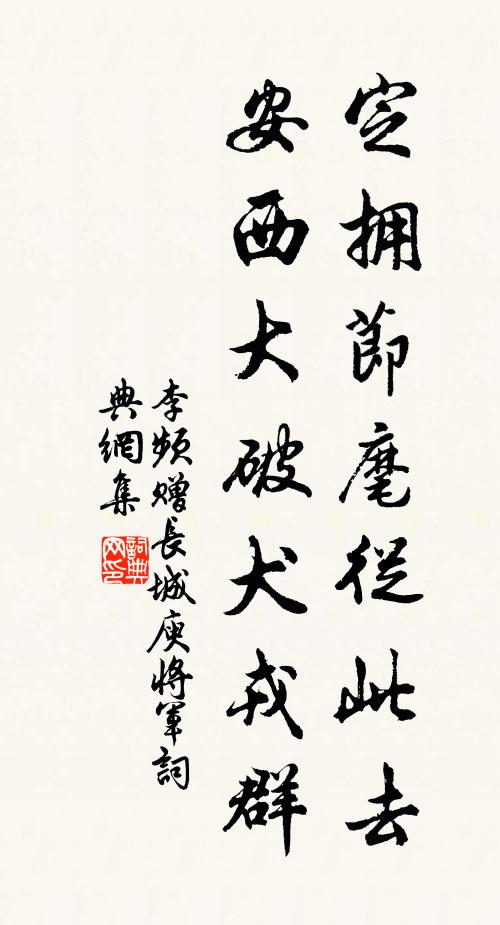 定擁節麾從此去
安西大破犬戎群
李頻贈長城庾將軍詞
典網集
詞典
网印